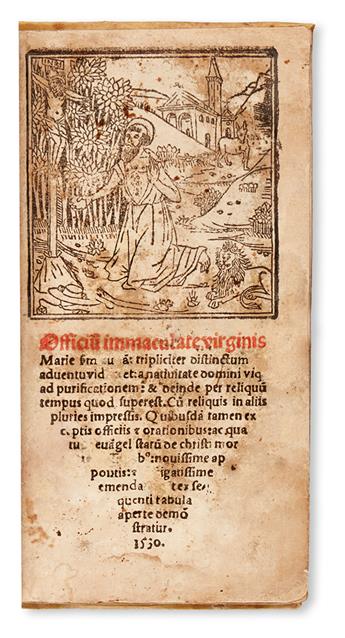 Officiũ immaculate virginis
Marie tripliciter distinctum
aduentu vid et a natiuitate domini vsq
ad purificationem: & deinde per reliquũ
tempus quod superest. Cũ reliquis in aliis
pluries impressis. Quibusdã tamen ex
c ptis officiis & orationibus: ac qua
tu euãgel starũ de christi mor
nouissime ap
positis: igatissime
emenda tex se
quenti tabula
aperte demõ
stratur.
1530.